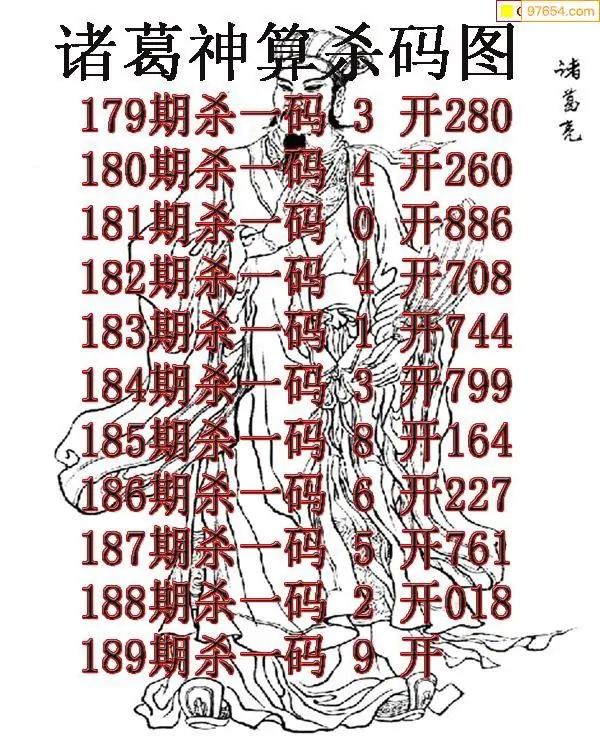 97654.com
诸葛神算杀码图
诸葛亮
179期杀一码 3 开280
180期杀一码 4 开260
181期杀一码 0 开886
182期杀一码 4 开708
183期杀一码 1 开744
184期杀一码 3 开799
185期杀一码 8 开164
186期杀一码 6 开227
187期杀一码 5 开761
188期杀一码 2 开018
189期杀一码 9 开